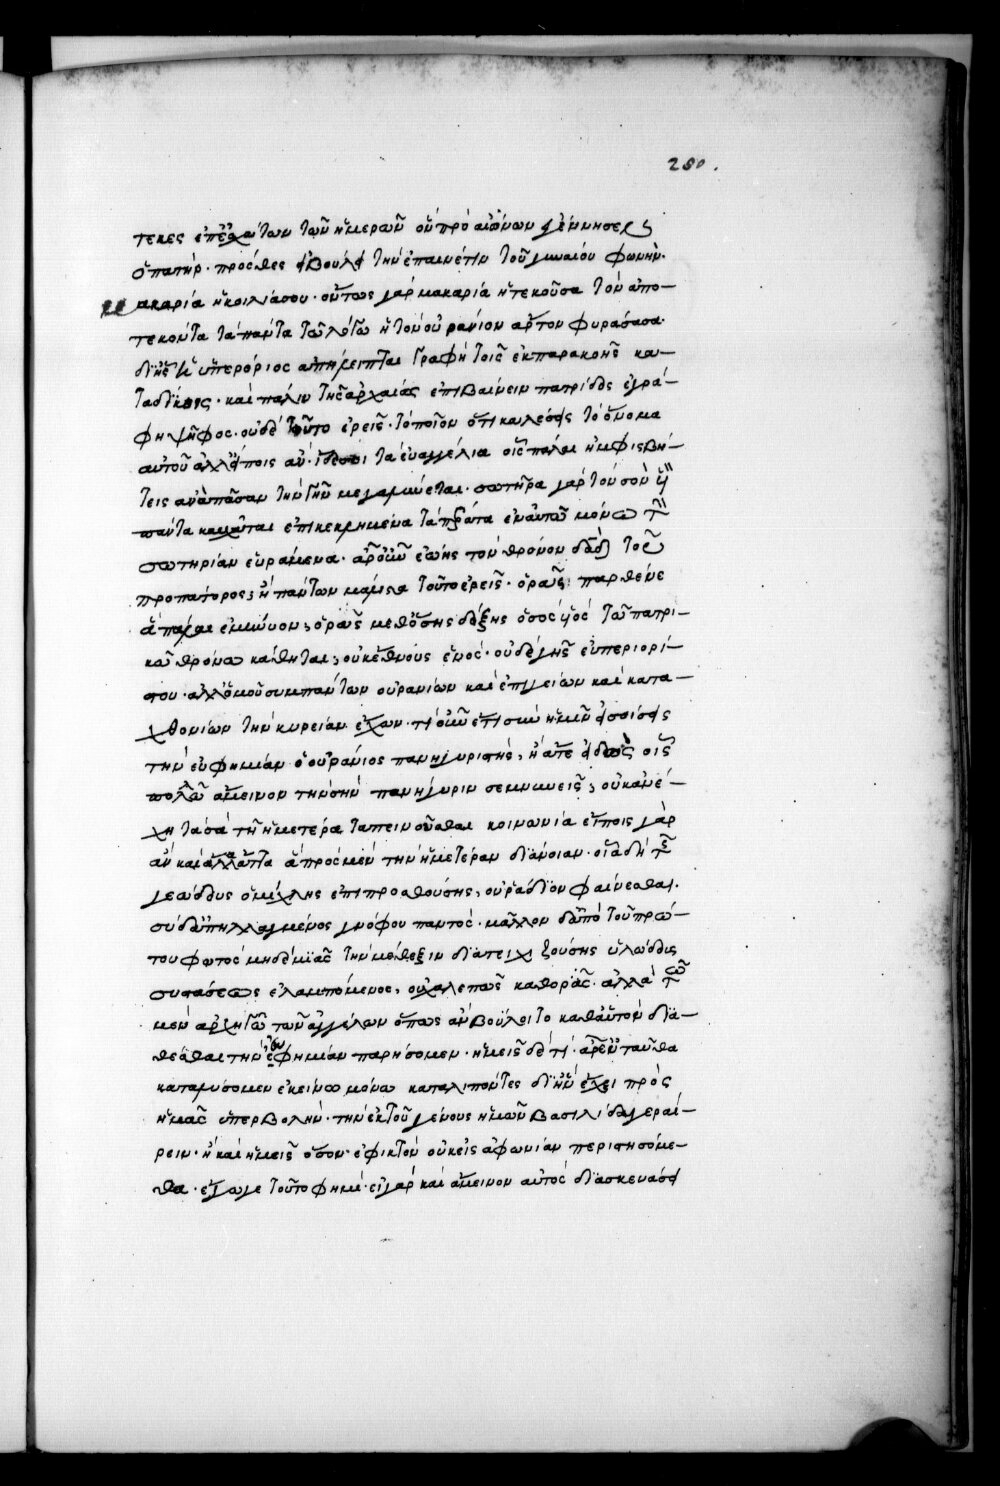 280.
τεκες ἐπ' ἐσχάτων τῶν ἡμερῶν ὃν πρὸ αἰώνων ἐγέννησε
ὁ πατήρ. πρόσθες εἰ βούλει τὴν ἐπαινέτιν τοῦ γυναίου φωνήν.
μακαρία ἡ κοιλία σου. οὕτως γὰρ μακαρία ἡ τεκοῦσα τὸν ἀπο-
τεκόντα τὰ πάντα τῷ λόγῳ ἢ τὸν οὐράνιον ἄρτον φυράσασα.
δι' ἧς ὑπερόριος ἀπήλειπται γραφὴ τοῖς ἐκ παρακοῆς κα-
ταδίκοις. καὶ πάλιν τῆς ἀρχαίας ἐπιβαίνειν πατρίδος ἐγρά-
φη ψῆφος. οὐδὲ τοῦτο ἐρεῖς. τὸ ποῖον ὅτι καλέσεις τὸ ὄνομα
αὐτοῦ ἀλλ' εἴποις ἂν. τὰ εὐαγγέλια οἷς πάλαι ἠμφισβή-
τεις ἀνὰ πᾶσαν τὴν γῆν μεγαλύνεται. σωτῆρα γὰρ τὸν σὸν
πάντα καλεῖται ἐπικεκλημένα τὰ πέρατα ἐν αὐτῷ μόνῳ
σωτηρίαν εὑράμενα. ἆρ' οὖν ἐῴης τὸν θρόνον δαδ τοῦ
προπάτορος; ἢ πάντων μάλιστα τοῦτο ἐρεῖς. ὁρᾷς παρθένε
ἃ πάλαι ἐμυοῦ; ὁρᾷς μεθ' ὅσης δόξης ὁ σὸς υἱὸς τῷ πατρι-
κῷ θρόνῳ κάθηται; οὐκ ἔθνους ἑνός. οὐδὲ γῆς εὐπεριορί-
στου. ἀλλ' ὁμοῦ συμπάντων οὐρανίων καὶ ἐπιγείων καὶ κατα-
χθονίων τὴν κυρείαν ἔχων. τί οὖν ἔτι σὺν ἡμῖν εἰσοίσεις
τὴν εὐφημίαν ὁ οὐράνιος πανηγυριστής; ἢ ἅτε εἰδὼς οἷς
πολλῷ ἄμεινον τὴν σὴν πανήγυριν σεμνυνεῖς; οὐκ ἀνέ-
χῃ τὰ σὰ τῇ ἡμετέρᾳ ταπεινοῦσθαι κοινωνίᾳ εἴποις γὰρ
ἂν καὶ ἄλλ' ἄττα ἃ πρὸς μὲν τὴν ἡμετέραν διάνοιαν. οἷα δὴ τῆς
γεώδους ὁμίχλης ἐπιπροσθούσης, οὐ ῥᾴδιον φαίνεσθαι.
σὺ δ' ἀπηλλαγμένος γνόφου παντός. μᾶλλον δ' ἀπὸ τοῦ πρώ-
του φωτὸς μηδεμιᾶς τὴν μέθεξιν διατειχιζούσης ὑλώδους
συστάσεως ἐλλαμπόμενος, οὐ χαλεπῶς καθορᾷς. ἀλλὰ τῷ
μὲν ἀρχηγῷ τῶν ἀγγέλων ὅπως ἂν βούλοιτο καθ' αὑτὸν δια-
θέσθαι τὴν εὐφημίαν παρήσομεν. ἡμεῖς δὲ τί. ἆρ' ἐνταῦθα
καταλύσομεν ἐκείνῳ μόνῳ καταλιπόντες δι' ἣν ἔχει πρὸς
ἡμᾶς ὑπερβολήν. τὴν ἐκ τοῦ γένους ἡμῶν βασιλίδα γεραί-
ρειν. ἢ καὶ ἡμεῖς ὅσον ἐφικτὸν οὐκ εἰς ἀφωνίαν περιστησόμε-
θα. ἔγωγε τοῦτο φημί. εἰ γὰρ καὶ ἄμεινον αὐτὸς διασκευάσει